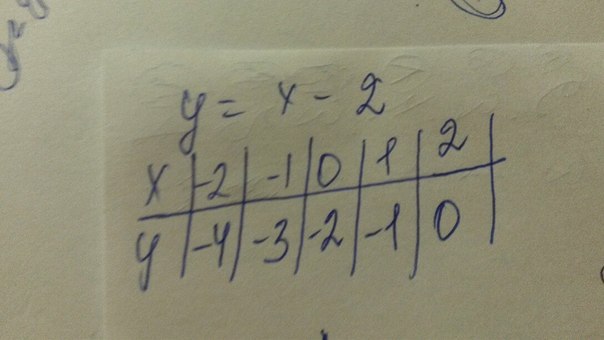 y = x - 2
x | -2 | -1 | 0 | 1 | 2 |
y | -4 | -3 | -2 | -1 | 0 |